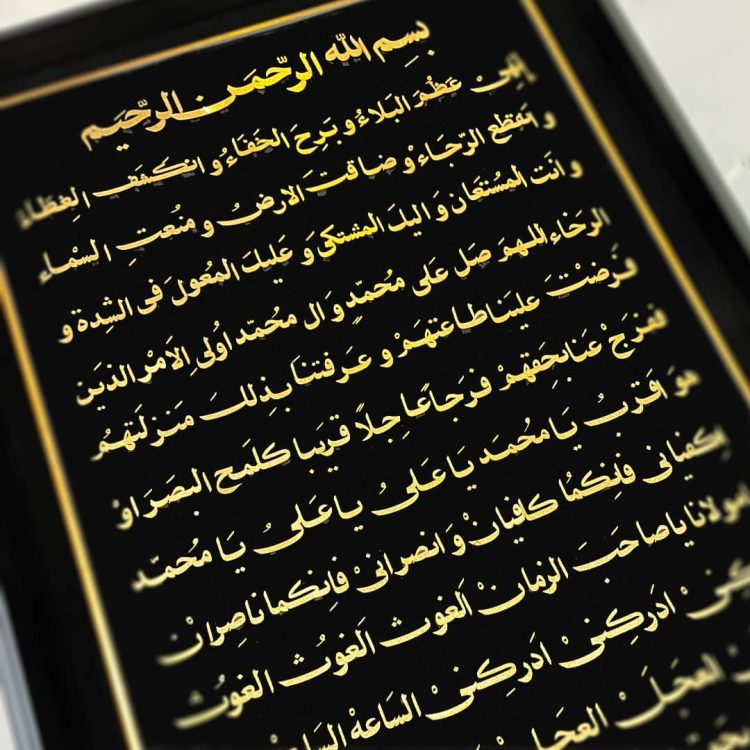 بِسمِ اللهِ الرحمنِ الرحیم
اِلهِیْ عَظُمَ البَلاءُ و بَرِحَ الخَفَاءُ و انکَشَفَ الغِطَاءُ
و انقَطَع الرّجَاءُ وَ ضاقَت الارضُ و مُنعتِ السّماء
و اَنتَ المُستعَان وَ الیكَ المشتکیٰ وَ عَلیكَ المُعَول فی الشِدة و
الرخَاء اللهمَ صَل عَلی مُحمّدٍ وَ ال محُمّد اُولی الاَمْرِ الذینَ
فَرضْتَ عَلینا طاعتهمْ و عَرفتنا بِذلِكَ مَنزلَتهُم
ففرجْ عَنا بحِقهمْ فرجَا عَاجِلاً قریبا کلمح البصَر اَوْ
هوَ اَقربُ یا محُمدَ یا عَلیُ یا عَلیُ یا مُحمّد
اِکفیانی فاِنکمُا کافِیانْ وَ انصرانیْ فاِنکما ناصِرانْ
مولانا یا صاحَبَ الزمانْ اَلغوث اَلغوُث الغوُث
ادَرکِنیْ ادَرکِنیْ السَاعهْ السَاعهْ
العجَلْ العجَلْ